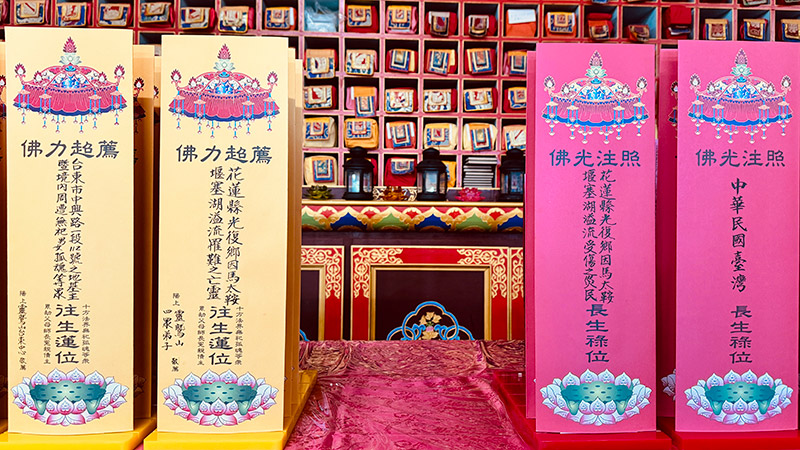 佛力超薦
台東市中興路一段 號之地基主
暨境內周遭無祀男女孤魂等眾
往生蓮位
十方法界無祀孤魂等眾
累劫父母師長冤親債主
陽上 靈鷲山台東中心 敬薦
佛力超薦
花蓮縣光復鄉因馬太鞍
堰塞湖溢流罹難之亡靈
往生蓮位
十方法界無祀孤魂等眾
累劫父母師長冤親債主
陽上 靈鷲山 敬薦
四眾弟子
佛光注照
花蓮縣光復鄉因馬太鞍
堰塞湖溢流受傷之災民
長生祿位
佛光注照
中華民國臺灣
長生祿位